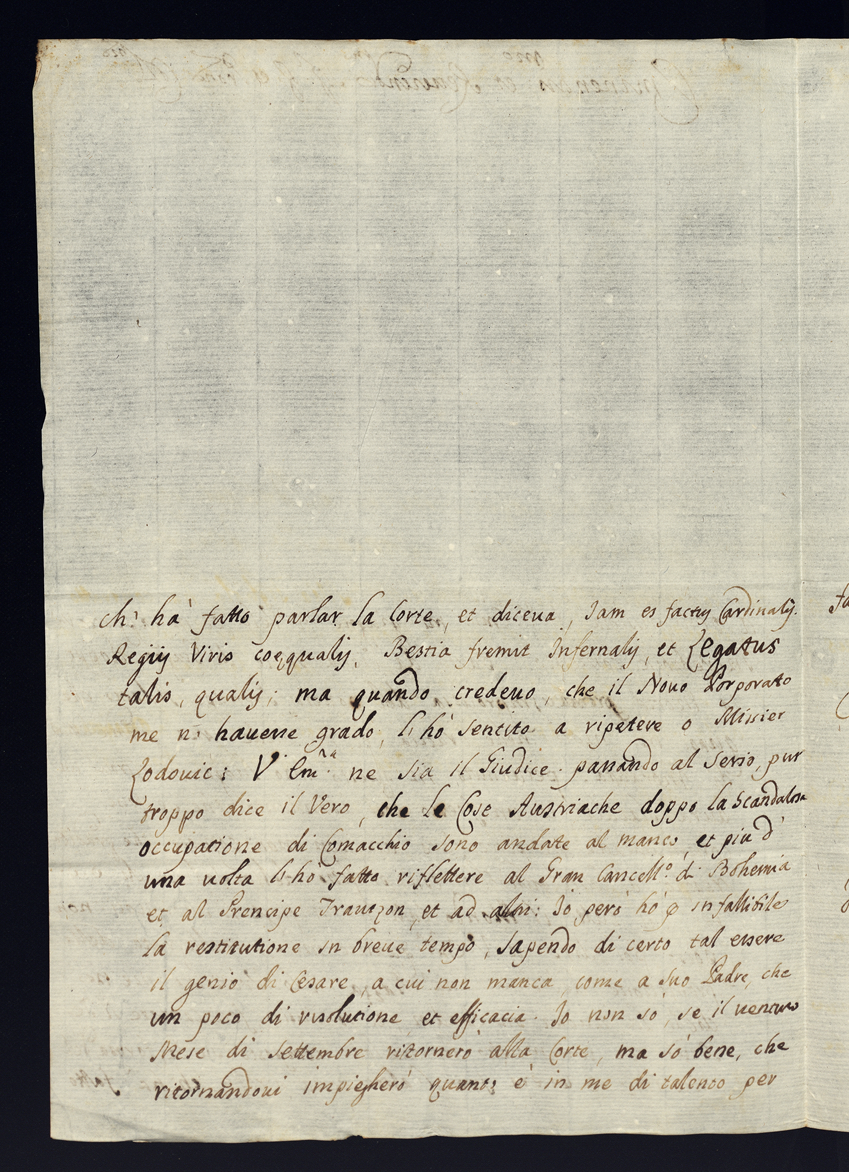 ch: hà fatto parlar la Corte, et diceva, Jam es factus Cardinalis.
Regiis Viris coęqualis, Bestia fremit Infernalis, et Legatus
talis, qualis; ma quando credevo, che il Novo Porporato
me n: havene grado, l: hò sentito a ripetere o Missier
Lodovic: V. Em.ª ne sia il Giudice parlando al serio, pur
troppo dice il Vero, che le Cose Austriache doppo la scandalosa
occupatione di Comacchio sono andate al manco, et piu d'
una volta l: hò fatto riflettere al Gran Cancell.º di Bohemia
et al Prencipe Trautzon, et ad altri: Io però hò infallibile
la restitutione in breve tempo, sapendo di certo tal essere
il genio di Cesare, a cui non manca, come a suo Padre, che
un poco di risolutione, et efficacia. Io non sò, se il venturo
Mese di Settembre ritornerò alla Corte, ma sò bene, che
ritornandovi impiegherò quanto è in me di talento per